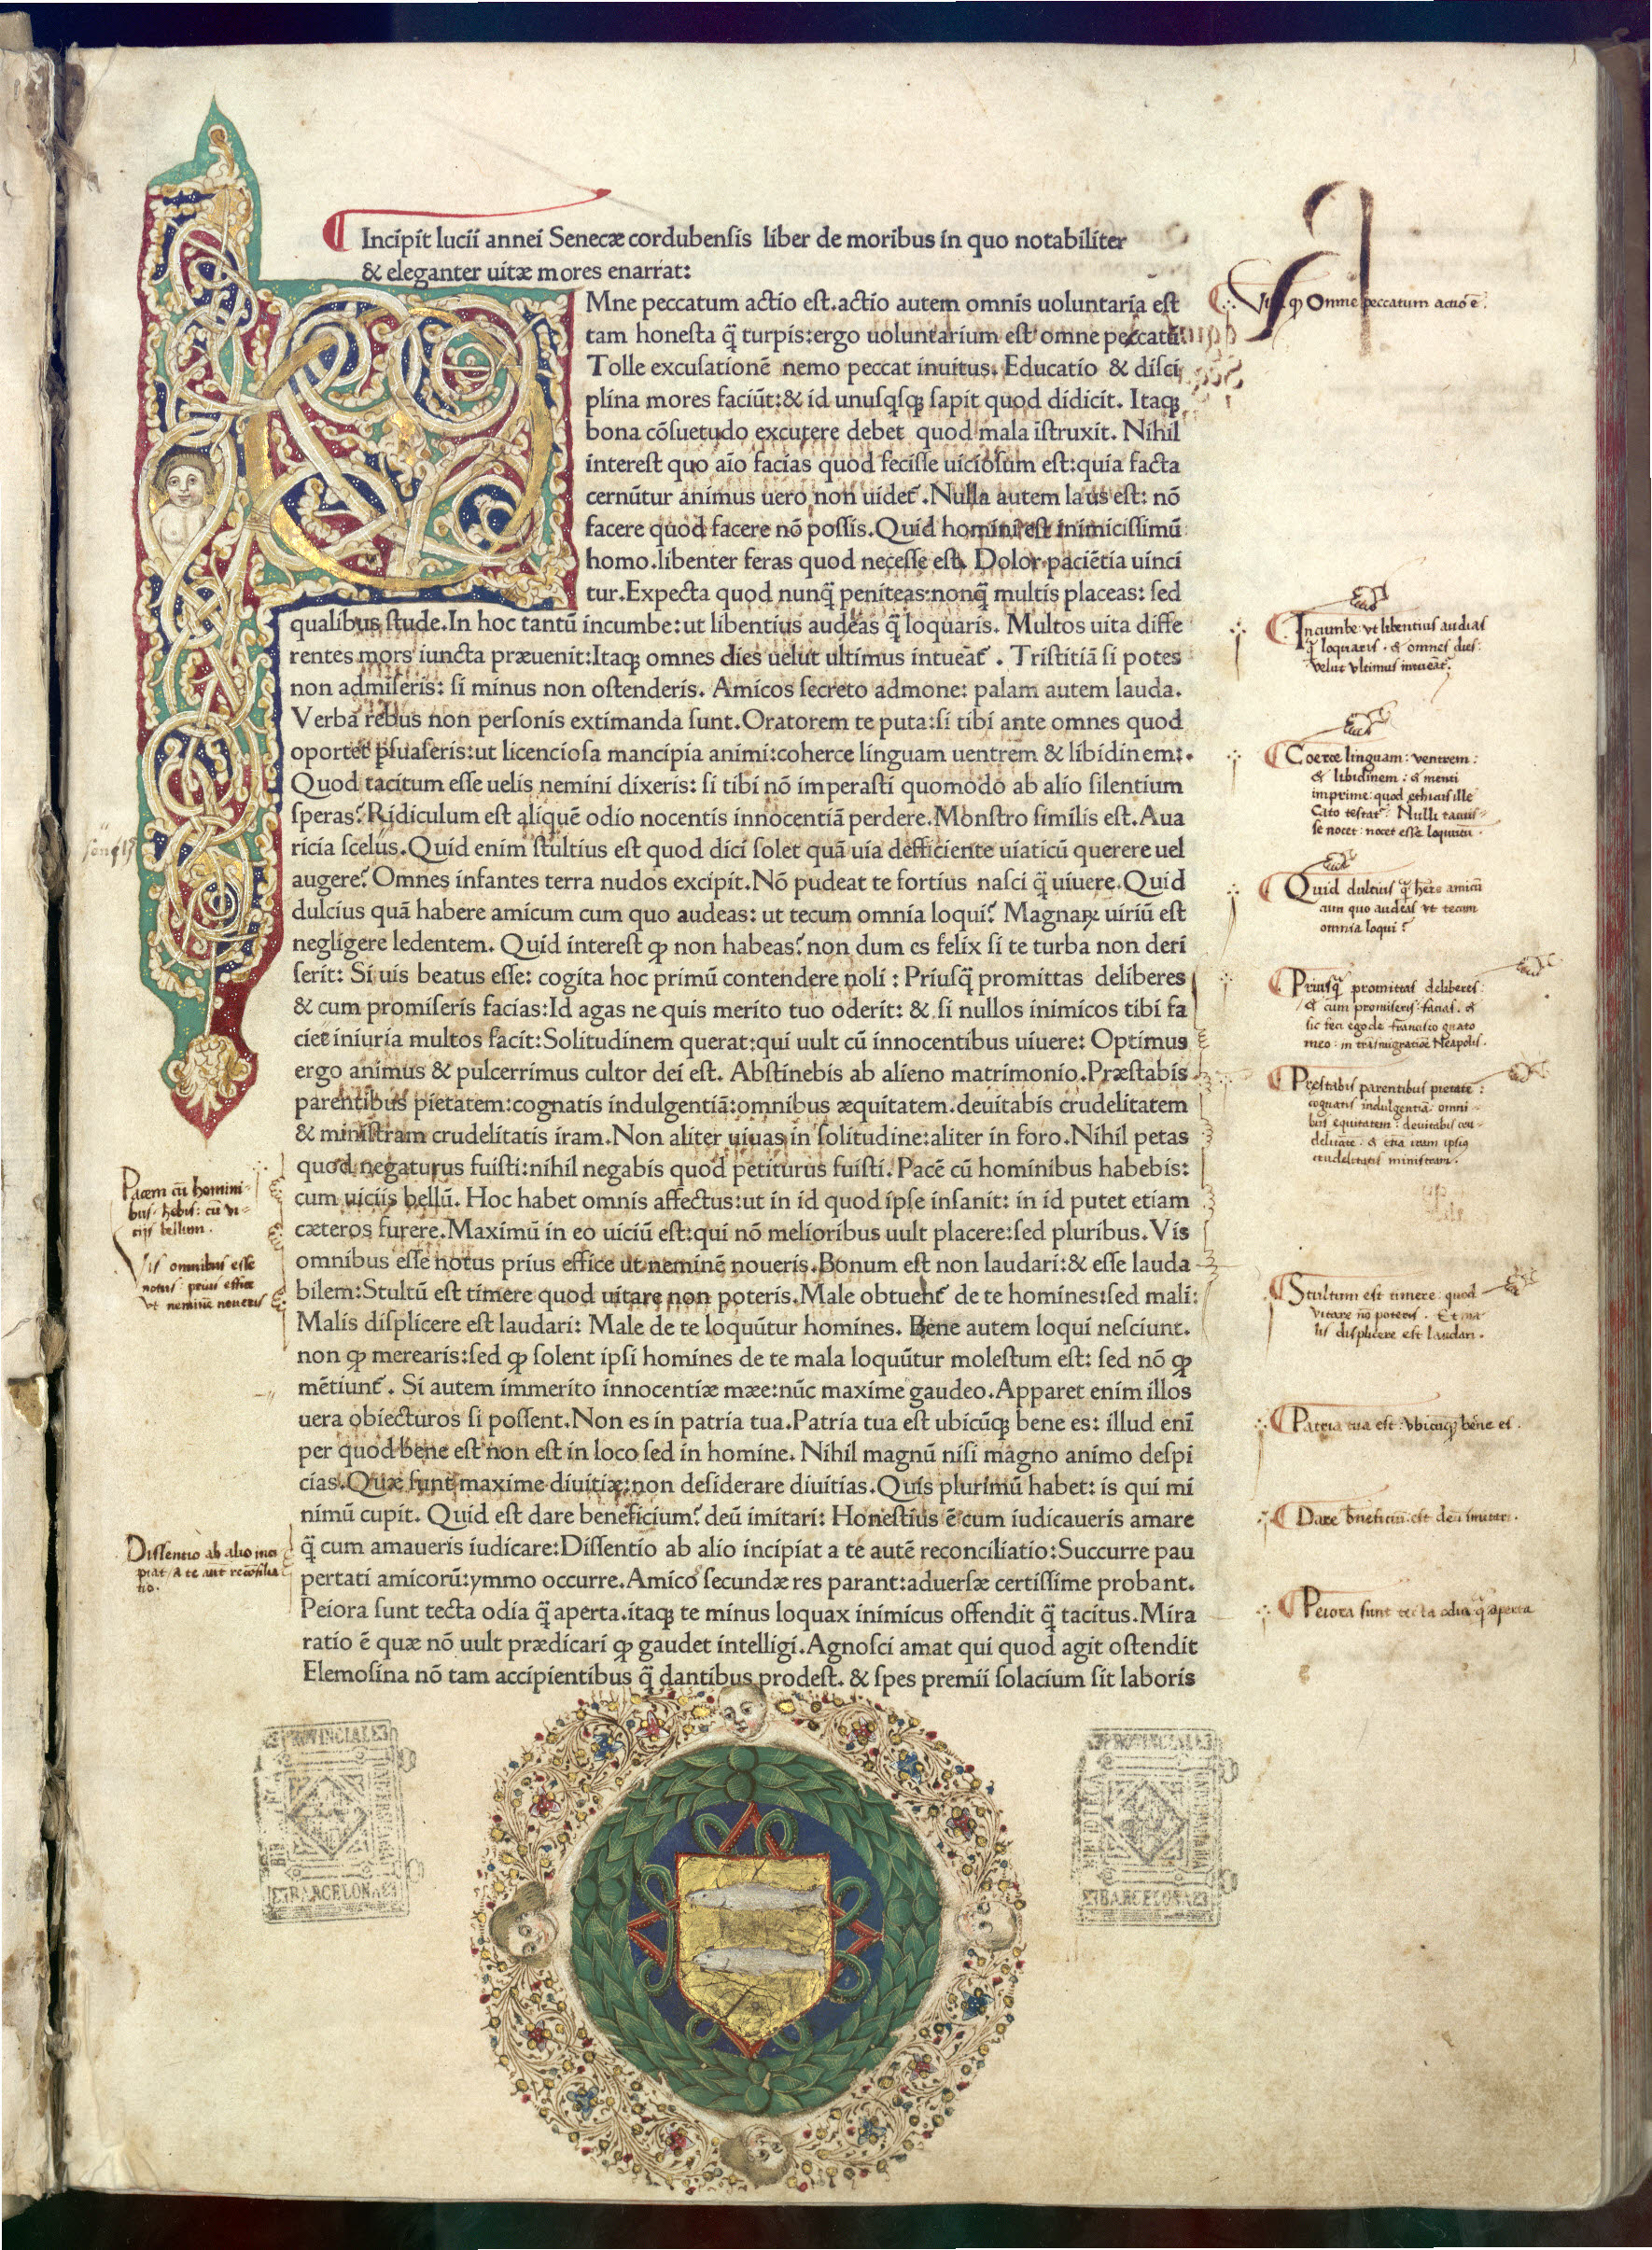 Incipit lucii annei Senecæ cordubensis liber de moribus in quo notabiliter
& eleganter uitæ mores enarrat:
Mne peccatum actio est.actio autem omnis uoluntaria est
tam honesta q̃ turpis:ergo uoluntarium est omne peccatũ
Tolle excusationẽ nemo peccat inuitus. Educatio & disci
plina mores faciũt:& id unusqsqꝫ sapit quod didicit. Itaqꝫ
bona cõsuetudo excutere debet quod mala ĩstruxit. Nihil
interest quo aĩo facias quod fecisse uiciosum est:quia facta
cernũtur animus uero non uidet᷑.Nulla autem laus est: nõ
facere quod facere nõ possis.Quid homini est inimicissimũ
homo.libenter feras quod necesse est. Dolor paciẽtia uinci
tur.Expecta quod nunq̃ peniteas:nonq̃ multis placeas: sed
qualibus stude.In hoc tantũ incumbe:ut libentius audeas q̃ loquaris. Multos uita diffe
rentes mors iuncta præuenit:Itaqꝫ omnes dies uelut ultimus intueat᷑ . Tristitiã si potes
non admiseris: si minus non ostenderis. Amicos secreto admone: palam autem lauda.
Verba rebus non personis extimanda sunt.Oratorem te puta:si tibi ante omnes quod
oportet ꝑsuaseris:ut licenciosa mancipia animi:coherce linguam uentrem & libidinem:.
Quod tacitum esse uelis nemini dixeris: si tibi nõ imperasti quomodo ab alio silentium
speras? Ridiculum est aliquẽ odio nocentis innocentiã perdere.Monstro similis est.Aua
ricia scelus.Quid enim stultius est quod dici solet quã uia defficiente uiaticũ querere uel
augere? Omnes infantes terra nudos excipit.Nõ pudeat te fortius nasci q̃ uiuere.Quid
dulcius quã habere amicum cum quo audeas: ut tecum omnia loqui? Magnaꝝ uiriũ est
negligere ledentem. Quid interest ꝙ non habeas? non dum es felix si te turba non deri
serit: Si uis beatus esse: cogita hoc primũ contendere noli : Priusq̃ promittas deliberes
& cum promiseris facias:Id agas ne quis merito tuo oderit: & si nullos inimicos tibi fa
ciet iniuria multos facit:Solitudinem querat:qui uult cũ innocentibus uiuere: Optimus
ergo animus & pulcerrimus cultor dei est. Abstinebis ab alieno matrimonio.Præstabis
parentibus pietatem:cognatis indulgentiã:omnibus æquitatem.deuitabis crudelitatem
& ministram crudelitatis iram.Non aliter uiuas in solitudine:aliter in foro.Nihil petas
quod negaturus fuisti:nihil negabis quod petiturus fuisti.Pacẽ cũ hominibus habebis:
cum uiciis bellũ. Hoc habet omnis affectus:ut in id quod ipse insanit: in id putet etiam
cæteros furere.Maximũ in eo uiciũ est:qui nõ melioribus uult placere:sed pluribus.Vis
omnibus esse notus prius effice ut neminẽ noueris.Bonum est non laudari:& esse lauda
bilem:Stultũ est timere quod uitare non poteris.Male obtueht᷑ de te homines:sed mali:
Malis displicere est laudari: Male de te loquũtur homines. Bene autem loqui nesciunt.
non ꝙ merearis:sed ꝙ solent ipsi homines de te mala loquũtur molestum est: sed nõ ꝙ
mẽtiunt᷑ . Si autem immerito innocentiæ mæe:nũc maxime gaudeo.Apparet enim illos
uera obiecturos si possent.Non es in patria tua.Patria tua est ubicũqꝫ bene es: illud enĩ
per quod bene est non est in loco sed in homine. Nihil magnũ nisi magno animo despi
cias.Quæ sunt maxime diuitiæ:non desiderare diuitias.Quis plurimũ habet: is qui mi
nimũ cupit. Quid est dare beneficium? deũ imitari: Honestius ẽ cum iudicaueris amare
q̃ cum amaueris iudicare:Dissentio ab alio incipiat a te autẽ reconciliatio:Succurre pau
pertati amicorũ:ymmo occurre.Amico secundæ res parant:aduersæ certissime probant.
Peiora sunt tecta odia q̃ aperta.itaqꝫ te minus loquax inimicus offendit q̃ tacitus.Mira
ratio ẽ quæ nõ uult prædicari ꝙ gaudet intelligi.Agnosci amat qui quod agit ostendit
Elemosina nõ tam accipientibus q̃ dantibus prodest. & spes premii solacium sit laboris
ꝙ Omne peccatum actio ẽ.
Incumbe vt libentius audias
q̃ loquaris . & omnes dies:
velut vltimus intueat᷑.
Coerce linguam: ventrem:
& libidinem : & menti
imprime: quod ethicus ille
Cato testat᷑: Nulli tacuis-
se nocet: nocet esse loquutũ.
Quid dultius q̃ hẽre amicũ
cum quo audeas vt tecum
omnia loqui?
Priusq̃ promittas deliberes:
& cum promiseris: facias. &
sic feci ego de francisco gnato
meo: in trãsmigratiõe Neapolis.
Prestabis parentibus pietatẽ:
cognatis indulgentiã: omni-
bus equitatem: deuitabis cru-
delitatẽ: & etiã iram ipsiꝯ
crudelitatis ministram.
Pacem cũ homini-
bus hebis: cũ vi-
cijs bellum.
Vis omnibus esse
notus: prius effice
vt neminẽ noueris
Stultum est timere: quod
vitare nõ poteris. Et ma-
lis displicere est laudari.
Patria tua est: vbicuqꝫ bene es.
Dare bñeficiũ: est deũ imitari.
Dissentio ab alio inci
piat/ a te aut reconsilia
tio.
Peiora sunt tecta odia q̃ aperta
PROVINCIAL
BARCELONA
PROVINCIAL
BARCELONA